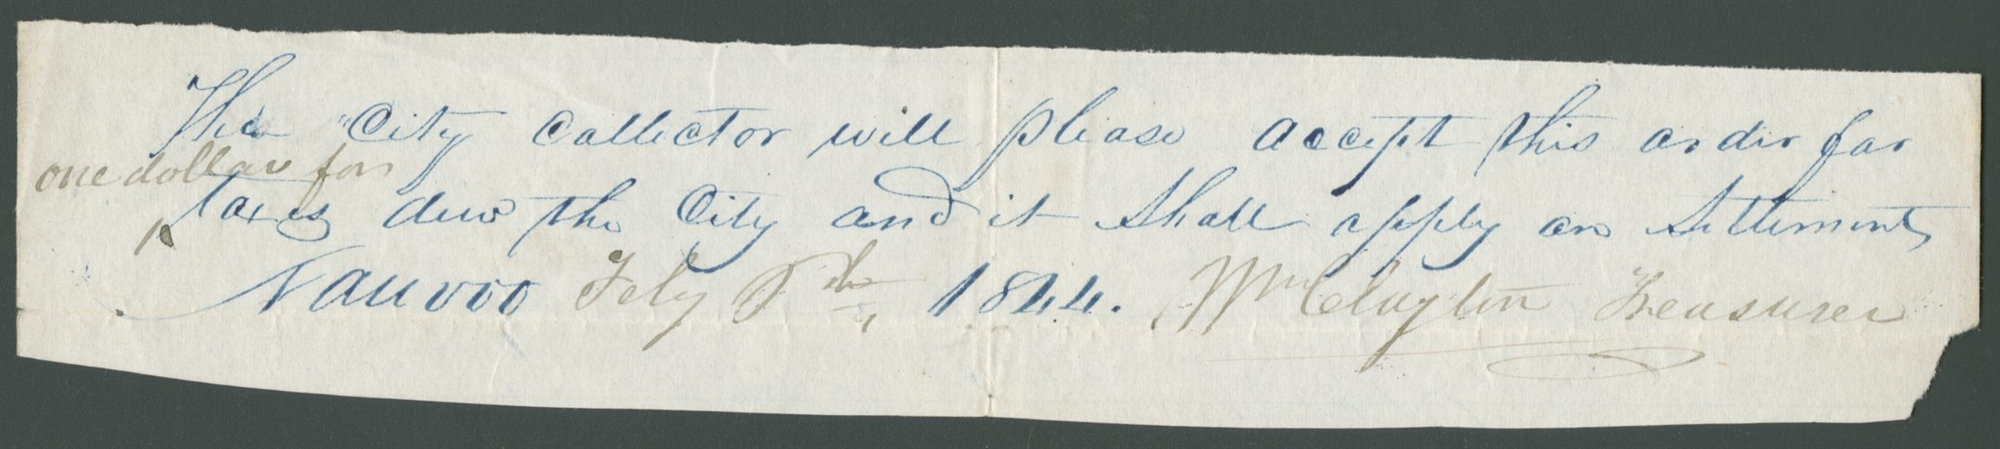 The City Collector will please accept this order for
one dollar for
taxes due the City and it shall apply on settlement,
Nauvoo Feby 1844. Wm Clayton Treasurer